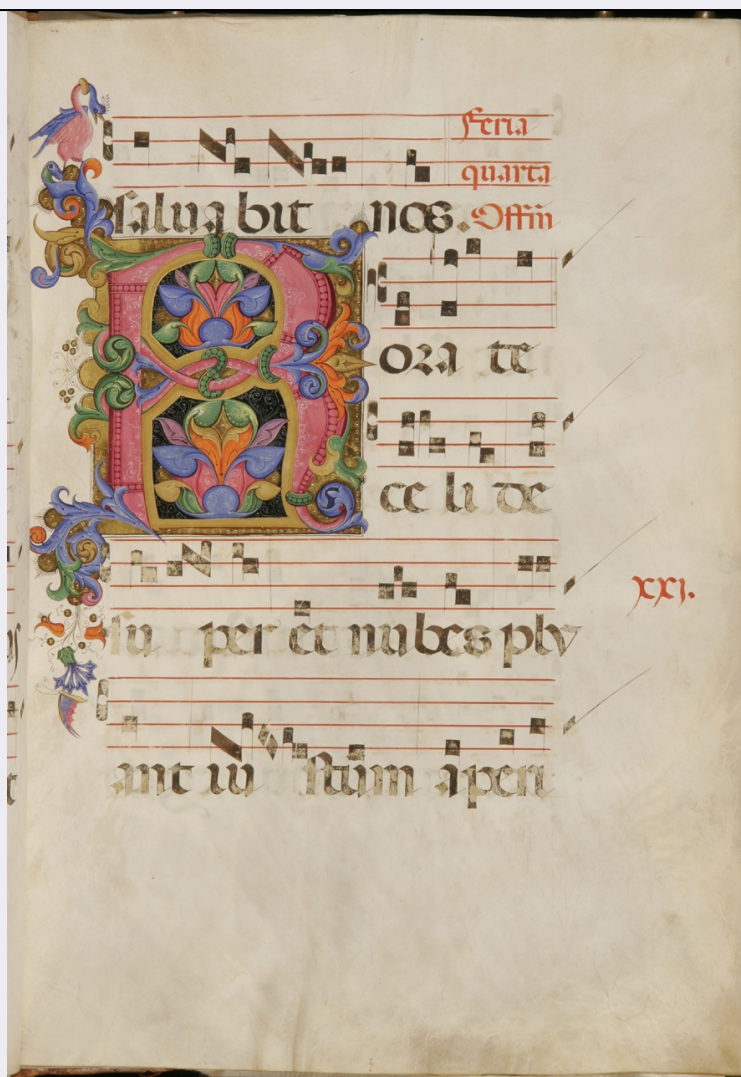 Feria
quarta
salua bit nos. Offiii
R ora te
ce li de
su per et nubes plu
XXI.
ant iu stum aperi